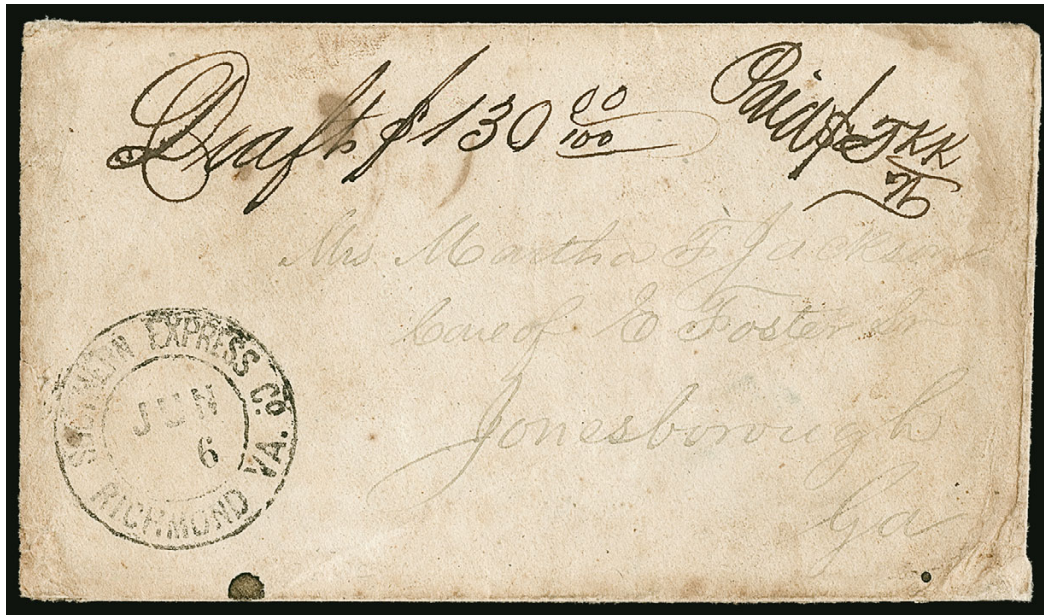 Draft $130 00/100
Paid $
Mrs Martha F Jackson
Care of E Foster
Jonesborough
Ga
SOUTHERN EXPRESS CO.
JUN
6
RICHMOND VA.